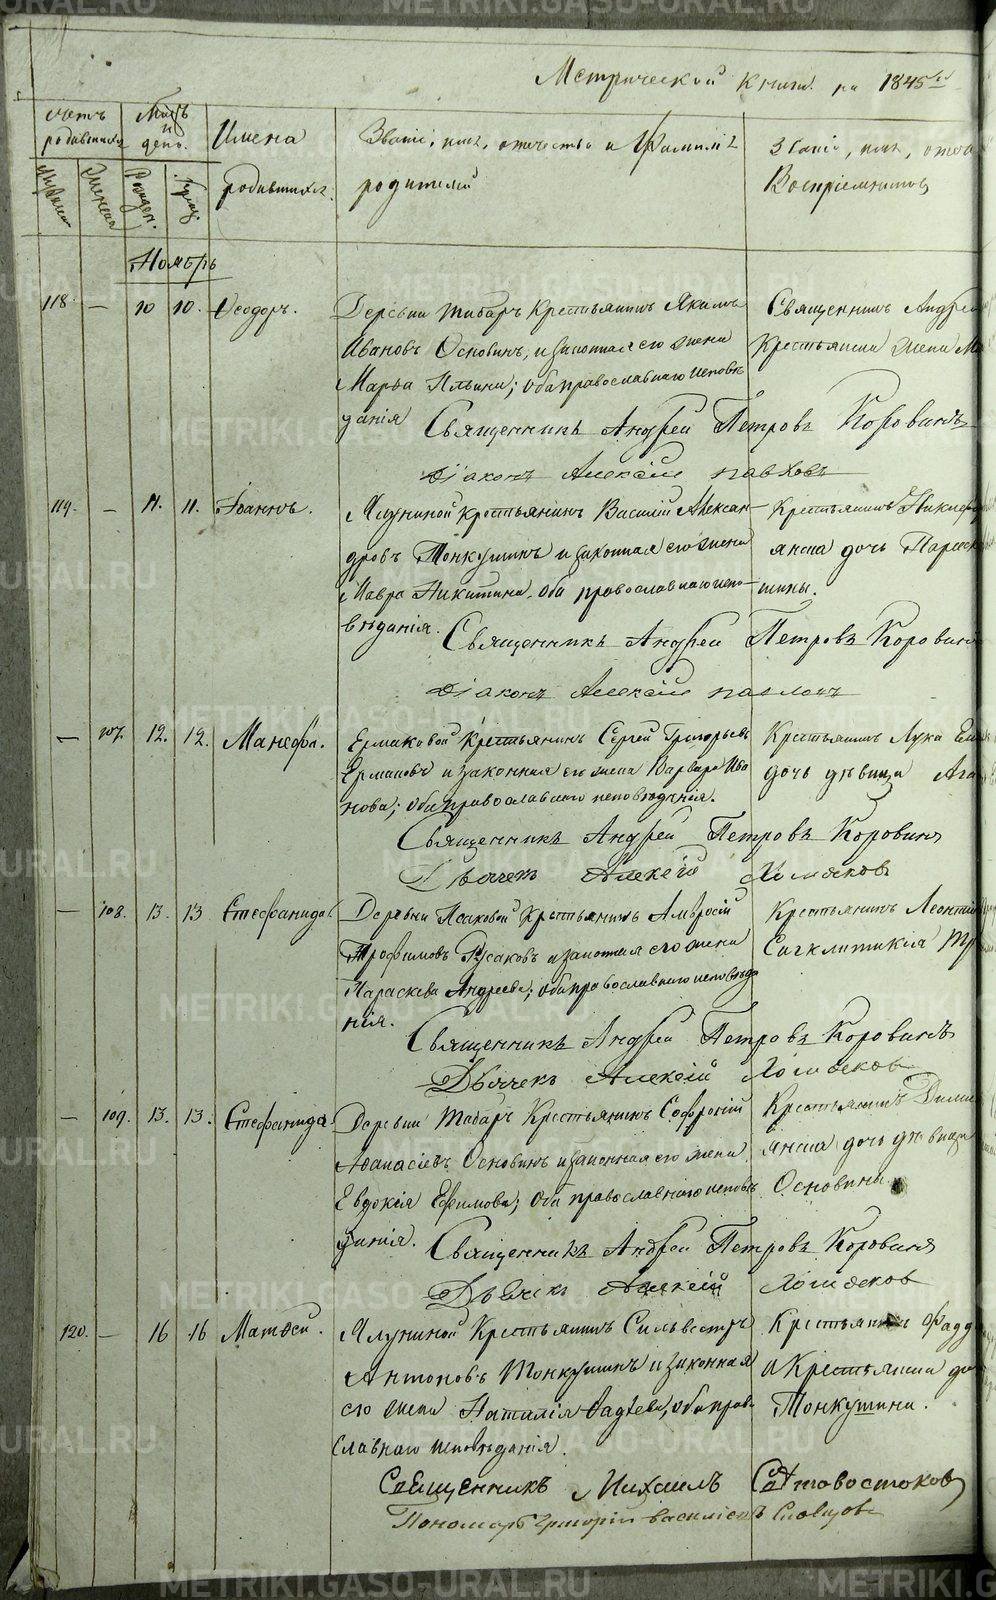 METRIKI.GASO-URAL.RU
Метрической книги на 1845й
счетъ родившихся
Мѣсяцъ и день.
Имена родившихся.
Званіе, имя, отечество и Фамилія родителей
Званіе, имя, отече
Воспріемниковъ
Мужеска
Женска
Рожден.
Крещ.
Ноябрь
118 — 10 10. Ѳеодоръ.
Деревни Табаръ Крестьянинъ Якимъ
Ивановъ Основинъ, и законная его жена
Марѳа Ильина; оба православнаго исповѣ
данія
Священникъ Андрей
Крестьянина жена Ма
Священникъ Андрей Петровъ Коровинъ
Діаконъ Алексій Павловъ
119. — 11. 11. Іоаннъ.
Ялуниной крестьянинъ Василій Алексан–
дровъ Тонкушинъ и законная его жена
Мавра Никитина, оба православнаго испо–
вѣданія.
Крестьянинъ Никифо
янина дочь Параск
шины.
Священникъ Андрей Петровъ Коровинъ
Діаконъ Алексій Павловъ
— 107. 12. 12. Манефа.
Ермаковой Крестьянинъ Сергей Григорьевъ
Ермаковъ и законная его жена Варвара Ива
нова; оба православнаго исповѣданія.
Крестьянинъ Лука Ем
дочь дѣвица Ага
Священникъ Андрей Петровъ Коровинъ
Дьячекъ Алексій Хомяков
— 108. 13. 13 Стефанида.
Деревни Исаковой Крестьянинъ Амвросій
Трофимовъ Русаковъ и законная его жена
Параскева Андреева; оба православнаго исповѣда
нія.
Крестьянинъ Леонтій
Сигклитикія Тр
Священникъ Андрей Петровъ Коровинъ
Дьячекъ Алексій Хомяков
— 109. 13. 13. Стефанида.
Деревни Табаръ Крестьянинъ Софроній
Аѳанасіевъ Основинъ и законная его жена
Евдокія Ефимова; оба православнаго исповѣ
данія.
Крестьянинъ Дими
янина дочь дѣвица
Основина
Священникъ Андрей Петровъ Коровинъ
Дьячекъ Алексій Хомяков
120. — 16 16 Матѳей.
Ялуниной Крестьянинъ Сильвестръ
Антоновъ Тонкушинъ и законная
его жена Наталія Фадѣева, оба право
славнаго исповѣданія.
Крестьянинъ Фадд
и Крестьянина до
Тонкушина.
Священникъ Михаилъ Святовостоков
Пономарь Григорій Василіевъ Словцовъ